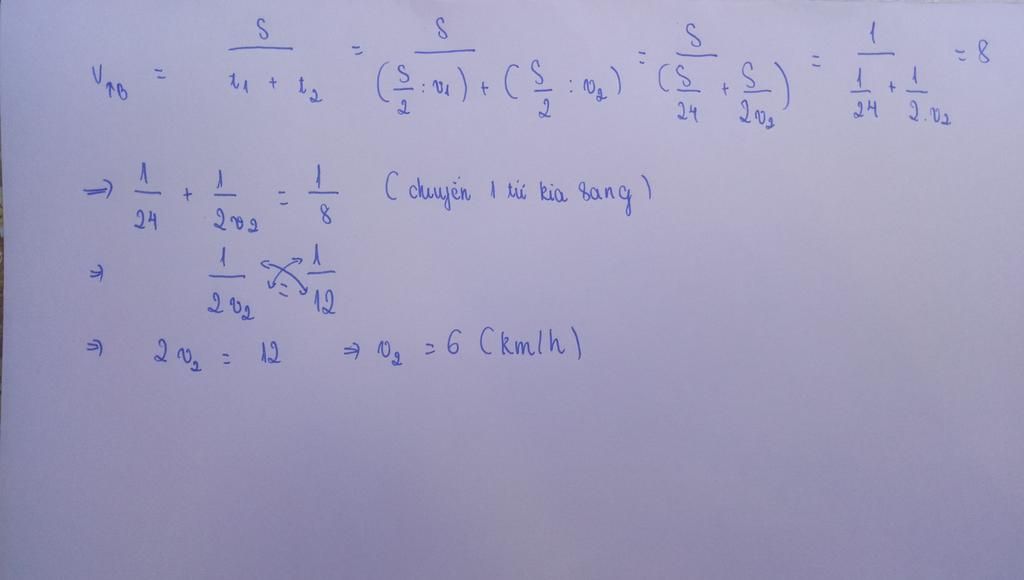 v_TB = S/(t₁ + t₂) = S/((S/2 : v₁) + (S/2 : v₂)) = S/(S/24 + S/2v₂) = 1/(1/24 + 1/2.v₂) = 8
=> 1/24 + 1/2v₂ = 1/8 (chuyển 1 từ kia sang)
=> 1/2v₂ = 1/12
=> 2v₂ = 12 => v₂ = 6 (km/h)